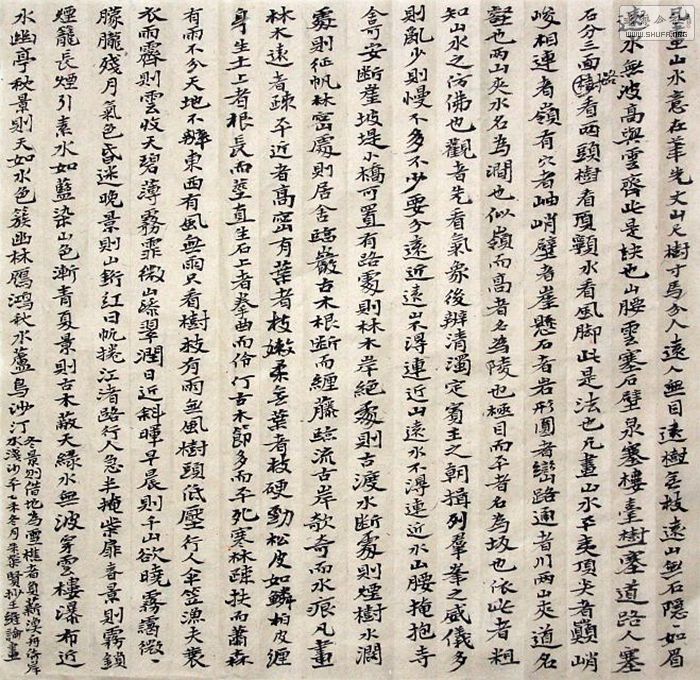 凡畫山水意在筆先丈山尺樹寸馬分人遠人無目遠樹無枝遠山無石隱〻如眉
遠水無波高與雲齊此是訣也山腰雲塞石壁泉塞樓臺樹塞道路人塞
石分三面路樹看兩頭樹看頂顆水看風脚此是法也凡畫山水平夷頂尖者巔峭
峻相連者嶺有穴者岫峭壁者崖懸石者岩形圓者巒路通者川兩山夾道名
壑也兩山夾水名為澗也似嶺而高者名為陵也極目而平者名為坂也依此者粗
知山水之仿佛也觀者先看氣象後辨清濁定賓主之朝揖列羣峯之威儀多
則亂少則慢不多不少要分遠近遠山不得連近山遠水不得連近水山腰掩抱寺
舍可安斷崖坡堤小橋可置有路處則林木岸絕處則古渡水斷處則煙樹水闊
處則征帆林密處則居舍臨巖古木根斷而纏藤臨流古岸欹奇而水痕凡畫
林木遠者疎平近者高密有葉者枝嫩柔無葉者枝硬勁松皮如鱗柏皮纏
身生土上者根長而莖直生石上者拳曲而伶仃古木節多而半死寒林疎扶而蕭森
有雨不分天地不辨東西有風無雨只看樹枝有雨無風樹頭低壓行人傘笠漁夫蓑
衣雨霽則雲收天碧薄霧霏微山添翠潤日近斜暉早晨則千山欲曉霧靄微〻
朦朧殘月氣色昏迷晚景則山銜紅日帆捲江渚路行人急半掩柴扉春景則霧鎖
煙籠長煙引素水如藍染山色漸青夏景則古木蔽天綠水無波穿雲樓瀑布近
水幽亭秋景則天如水色簇幽林鴈鴻秋水蘆鳥沙汀
冬景則借地為雪樵者負薪漁舟倚岸
水淺沙平乙未冬月朱榮賢抄王維論畫